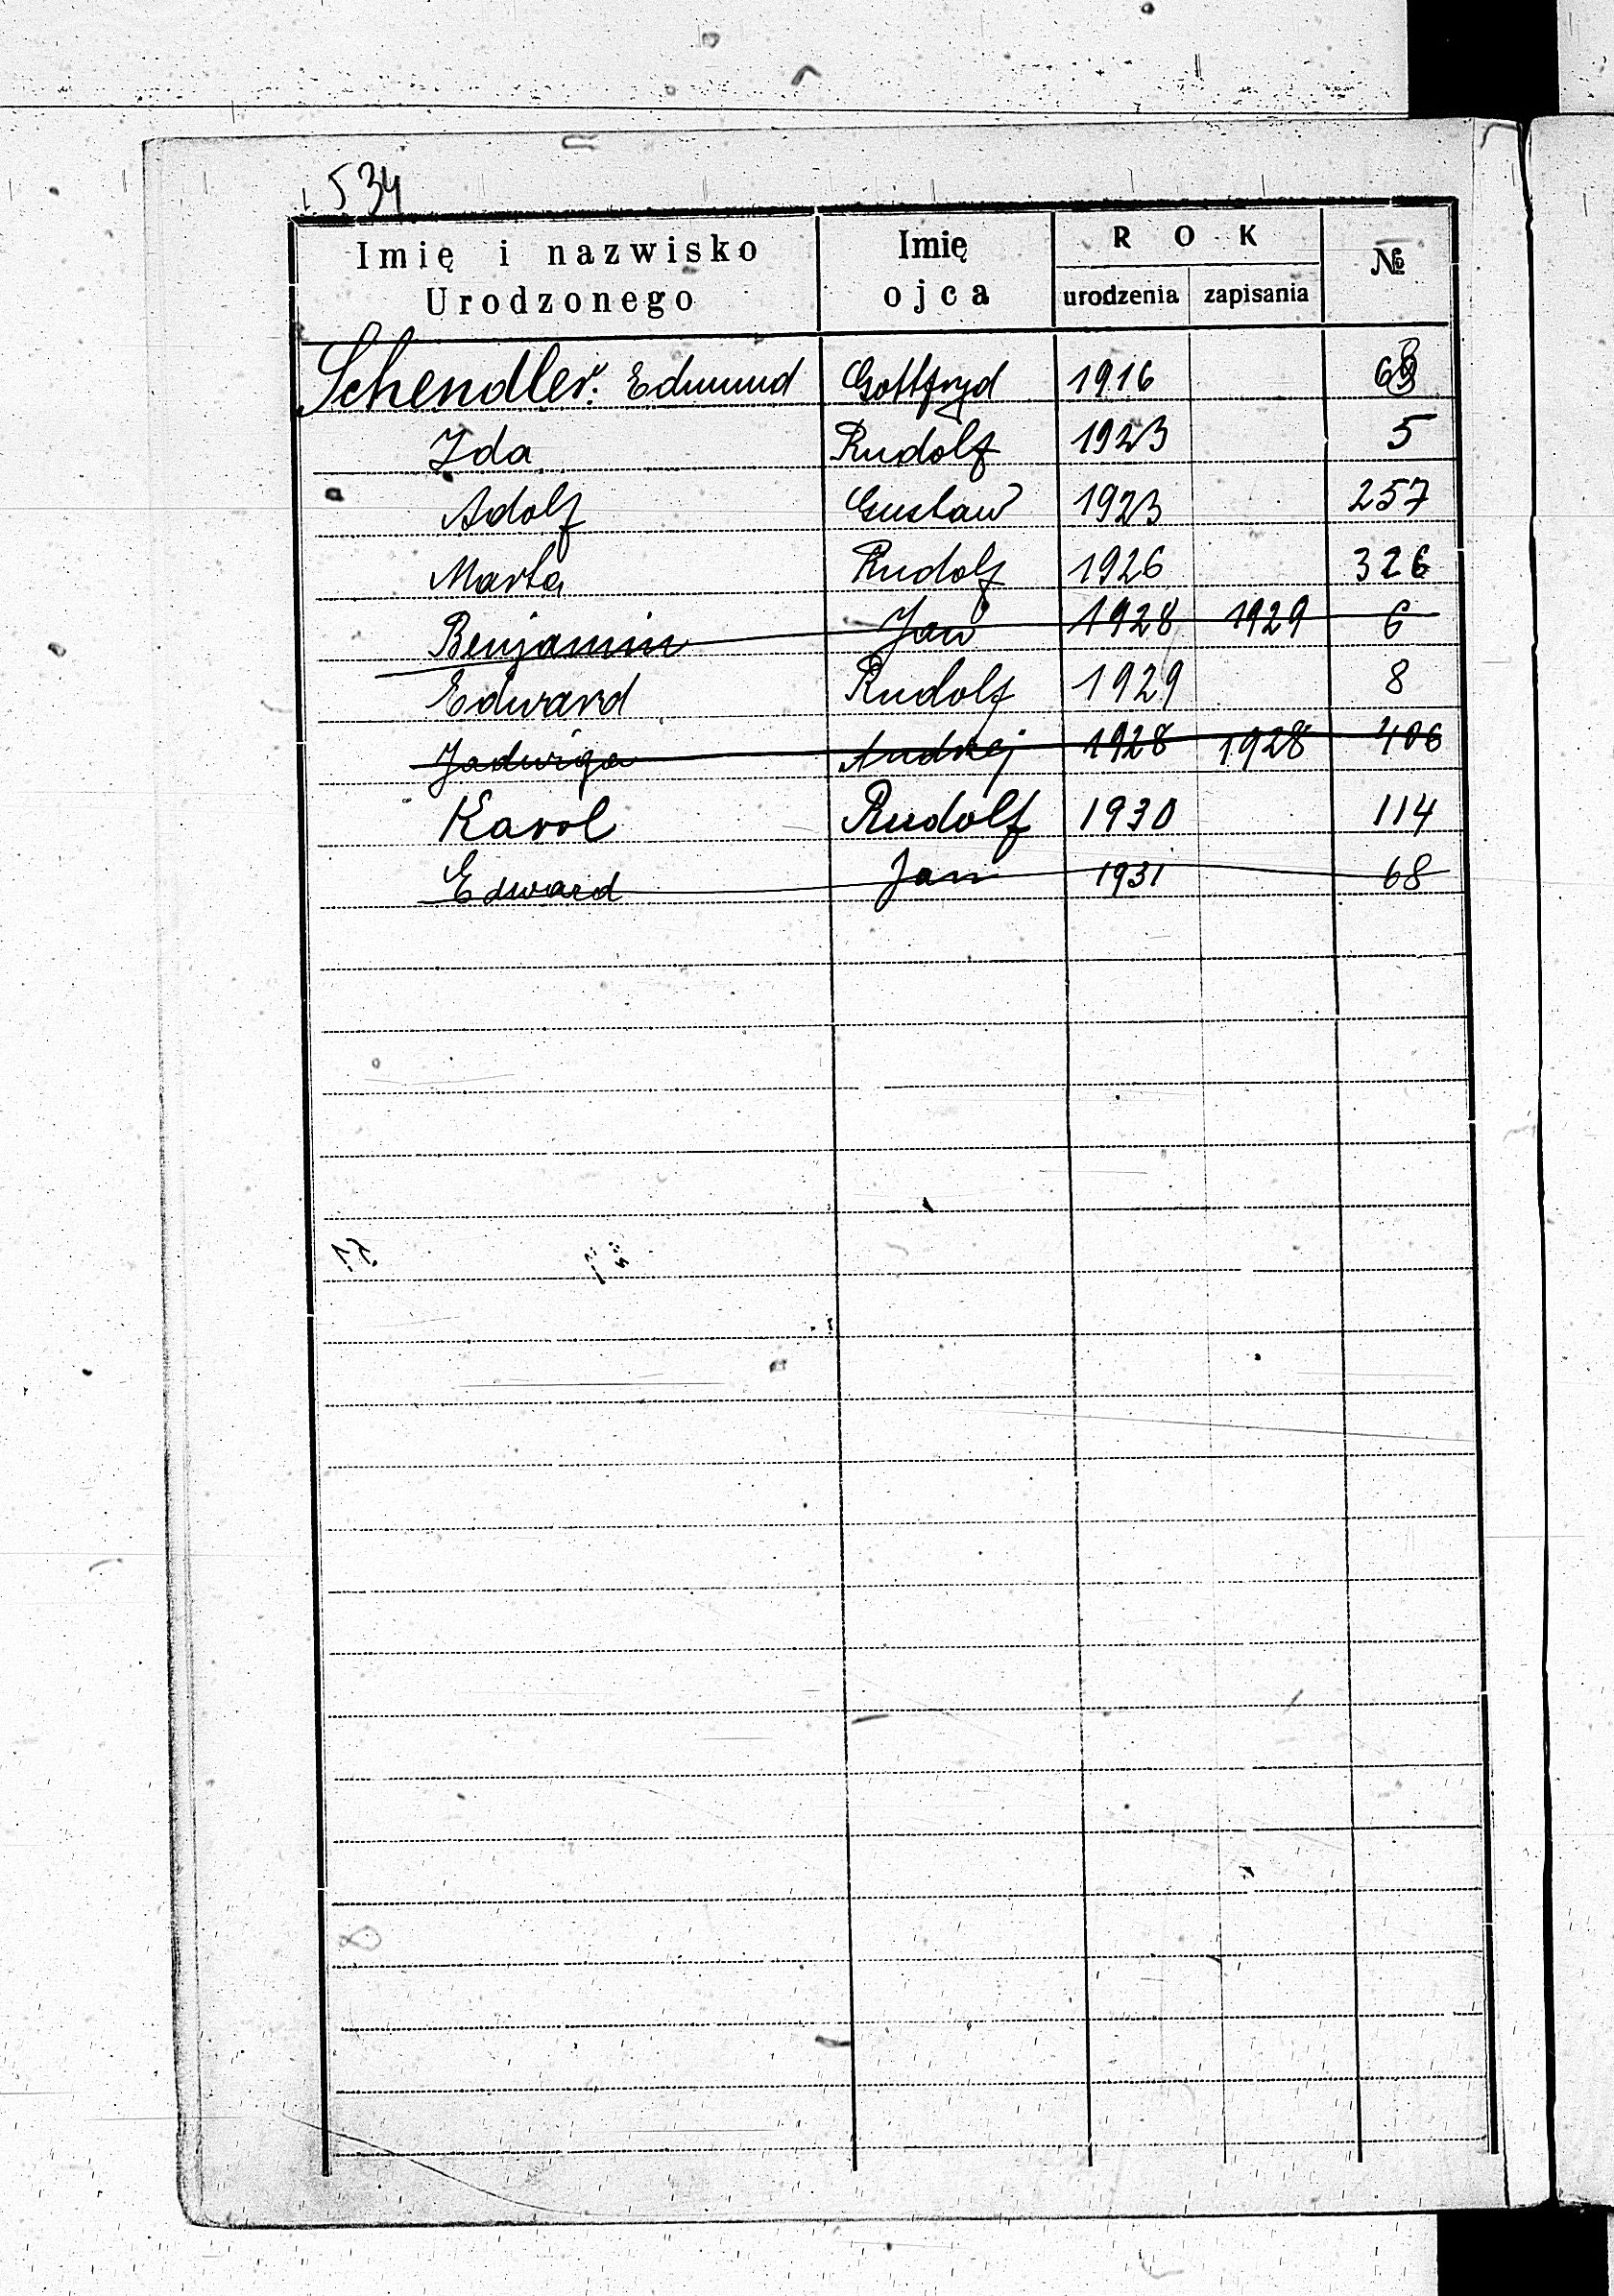 534
Imię i nazwisko Urodzonego Imię ojca ROK urodzenia zapisania №
Schendler: Edmund Gottfryd 1916
Ida Rudolf 1923 5
Adolf Gustaw 1923 257
Marta Rudolf 1926 326
Benjamin Jan 1928 1929 6
Edward Rudolf 1929 8
Jadwiga Andrzej 1928 1928 406
Karol Rudolf 1930 114
Edward Jan 1931 68